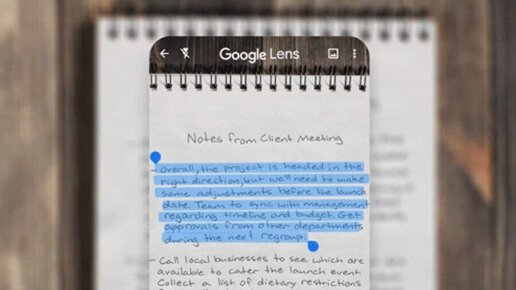 Google Lens
Notes from Client Meeting
- Overall, the project is headed in the
right direction, but we'll need to make
some adjustments before the launch
date. Team to sync with management
regarding timeline and budget. Get
approvals from other departments
during the next regroup.
- Call local businesses to see which are
available to cater the launch event.
Collect a list of dietary restrictions